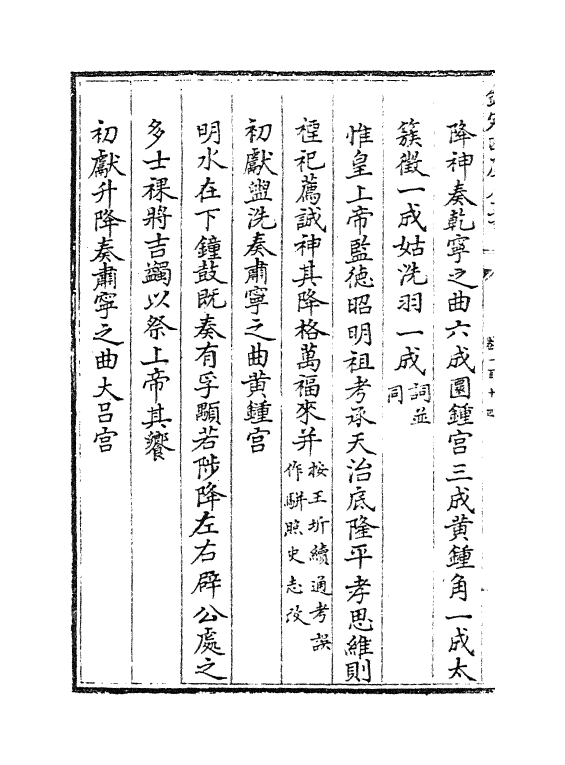 降神奏乾寧之曲六成圜鍾宮三成黄鍾角一成太
簇徵一成姑洗羽一成詞並同
惟皇上帝監徳昭明祖考承天治底隆平孝思維則
禋祀薦誠神其降格萬福來并按王圻續通考誤作駢照史志改
初獻盥洗奏肅寧之曲黄鍾宫
明水在下鐘鼓既奏有孚顒若陟降左右辟公處之
多士祼將吉蠲以祭上帝其饗
初獻升降奏肅寧之曲大吕宫